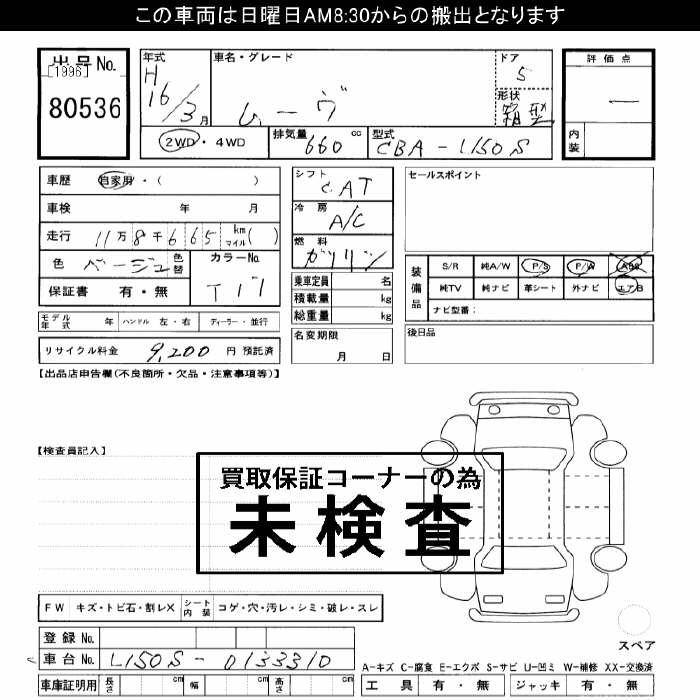 この車両は日曜日AM8:30からの搬出となります
出品No.
[1996]
80536
年式
H
16/3月
車名・グレード
ムーヴ
ドア
5
形状
箱型
評価点
―
内装
2WD・4WD
排気量
660 cc
型式
CBA-L150S
車歴 自家用・( )
車検 年 月
走行 11万8千665 km マイル( )
色 ベージュ 色替
カラーNo.
T17
保証書 有・無
モデル年式 年 ハンドル 左・右 ディーラー・並行
リサイクル料金 9,200 円 預託済
シフト
CAT
冷房
A/C
燃料
ガソリン
乗車定員 名
積載量 kg
総重量 kg
名変期限
月 日
セールスポイント
装備品
S/R 純A/W P/S P/W ABS
純TV 純ナビ 革シート 外ナビ エアB
ナビ型番:
後日品
【出品店申告欄(不良箇所・欠品・注意事項等)】
【検査員記入】
買取保証コーナーの為
未検査
FW キズ・トビ石・割レX シート内装 コゲ・穴・汚レ・シミ・破レ・スレ
登録No.
車台No. L150S-0133310
車庫証明用 長さ cm 幅 cm 高さ cm
スペア
A-キズ C-腐食 E-エクボ S-サビ U-凹ミ W-補修 XX-交換済
工具 有・無 ジャッキ 有・無